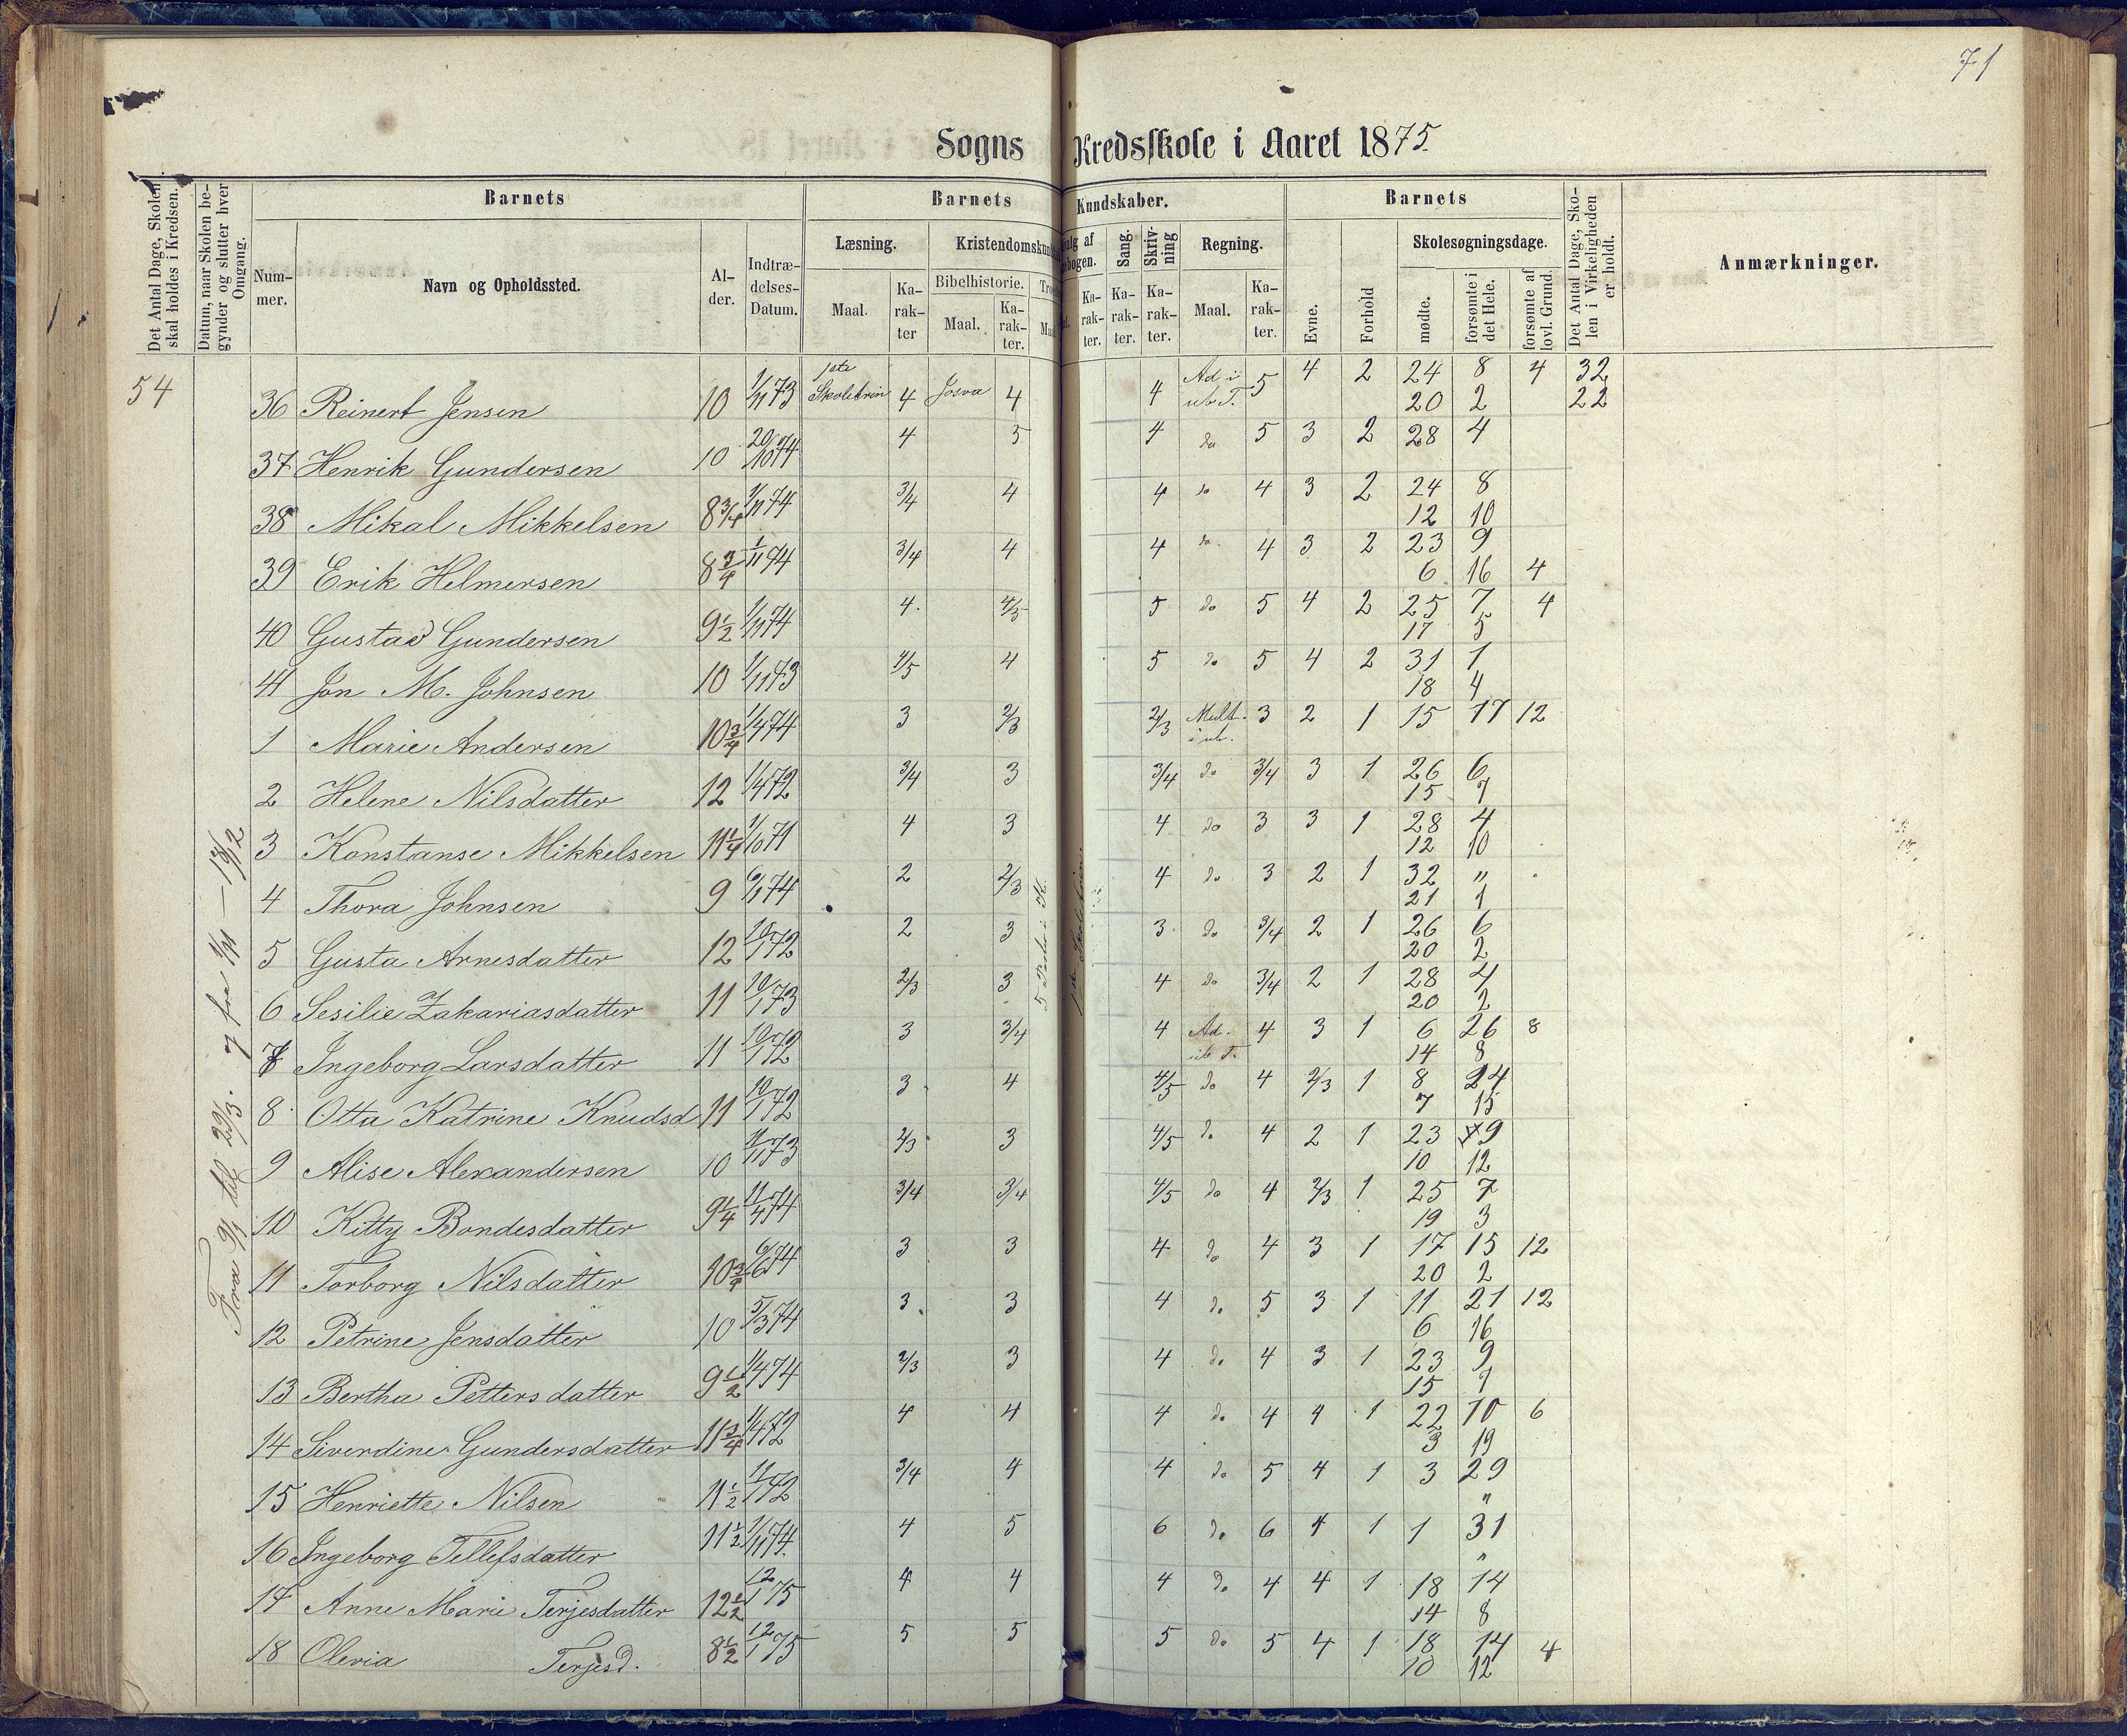 71
Sogns Kredsskole i Aaret 1875.
Det Antal Dage, Skolen skal holdes i Kredsen.
Datum, naar Skolen begynder og slutter hver Omgang.
Barnets
Nummer.
Navn og Opholdssted.
Alder.
Indtrædelses-Datum.
Barnets Kundskaber.
Læsning.
Maal.
Karakter
Kristendomskund
Bibelhistorie.
Maal.
Karakter.
Karakter.
Sang.
Karakter.
Skrivning
Karakter.
Regning.
Maal.
Karakter.
Barnets
Evne.
Forhold
Skolesøgningsdage.
mødte.
forsømte i det Hele.
forsømte af lovl. Grund.
Det Antal Dage, Skolen i Virkeligheden er holdt.
Anmærkninger.
54
Fra 9/1 til 29/3.
36 Reinert Jensen 10 1/11 73 1ste Skoletrin 4 Josva 4 4 Ad. i ub T. 5 4 2 24 8 4 32
20 2 22
37 Henrik Gundersen 10 20/10 74 4 5 4 do 5 3 2 28 4
38 Mikal Mikkelsen 8 3/4 1/11 74 3/4 4 4 do 4 3 2 24 8
12 10
39 Erik Helmersen 8 3/4 1/11 74 3/4 4 4 do 4 3 2 23 9
6 16 4
40 Gustav Gundersen 9 1/2 1/11 74 4 4/5 5 do 5 4 2 25 7 4
17 5
41 Jon M. Johnsen 10 1/11 73 4/5 4 5 do 5 4 2 31 1
18 4
1 Marie Andersen 10 3/4 1/4 74 3 2/3 2/3 Mult. i ub. 3 2 1 15 17 12
2 Helene Nilsdatter 12 1/4 72 3/4 3 3/4 do 3/4 3 1 26 6
15 7
3 Konstanse Mikkelsen 11 1/4 1/10 71 4 3 4 do 3 3 1 28 4
12 10
4 Thora Johnsen 9 6/1 74 2 2/3 4 do 3 2 1 32 "
21 1
5 Gusta Arnesdatter 12 10/1 72 2 3 3 do 3/4 2 1 26 6
20 2
6 Sesilie Zakariasdatter 11 10/1 73 2/3 3 4 do 3/4 2 1 28 4
20 2
7 Ingeborg Larsdatter 11 10/1 72 3 3/4 4 Ad. ub T. 4 3 1 6 26 8
14 8
8 Otta Katrine Knudsd 11 10/1 72 3 4 4/5 do 4 2/3 1 8 24
7 15
9 Alise Alexandersen 10 1/11 73 2/3 3 4/5 do 4 2 1 23 9
10 12
10 Kitty Bondesdatter 9 1/4 11/4 74 3/4 3/4 4/5 do 4 2/3 1 25 7
19 3
11 Torborg Nilsdatter 10 3/4 6/6 74 3 3 4 do 4 3 1 17 15 12
20 2
12 Petrine Jensdatter 10 5/3 74 3 3 4 do 5 3 1 11 21 12
6 16
13 Bertha Pettersdatter 9 1/2 1/4 74 2/3 3 4 do 4 3 1 23 9
15 7
14 Siverdine Gundersdatter 11 3/4 1/4 72 4 4 4 do 4 4 1 22 10 6
3 19
15 Henriette Nilsen 11 1/2 11/1 72 3/4 4 4 do 5 4 1 3 29
"
16 Ingeborg Tellefsdatter 11 1/2 1/11 74. 4 5 6 do 6 4 1 1 31
"
17 Anne Marie Terjesdatter 12 1/2 12/1 75 4 4 4 do 4 4 1 18 14
14 8
18 Olevia Terjesd. 8 1/2 12/1 75 5 5 5 do 5 4 1 18 14 4
10 12